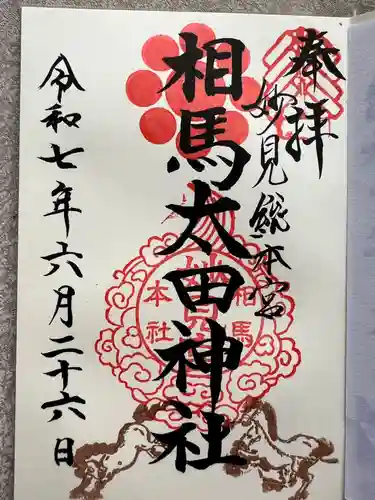 奉拝
妙見総本宮
相馬太田神社
令和七年六月二十六日
相馬
妙見
本社